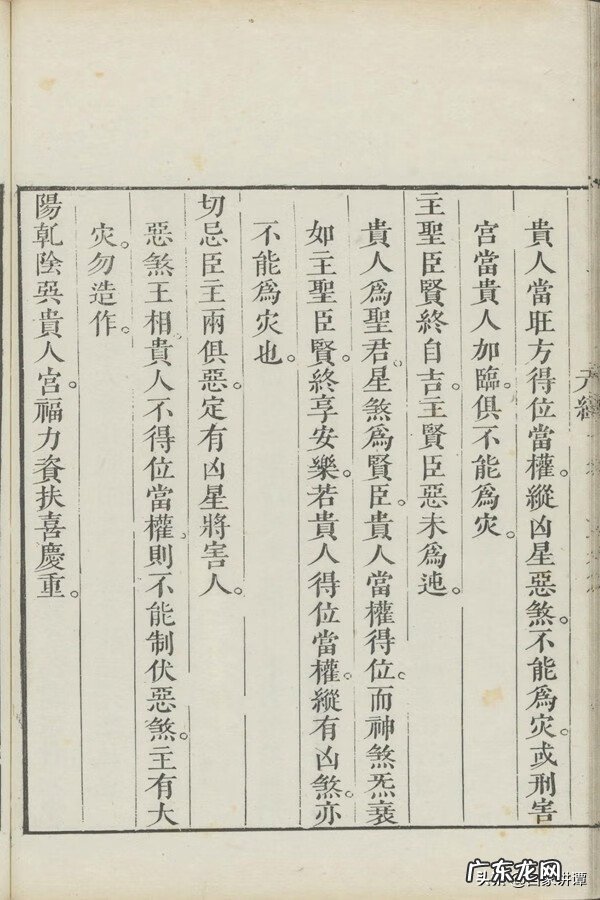 貴人當旺方得位當權。縱凶星惡煞。不能爲灾。或刑害
宮當貴人加臨。俱不能爲灾。
主聖臣賢終自吉。主賢臣惡未爲迍。
貴人爲聖君。星煞爲賢臣。貴人當權得位。而神煞旡衰
如主聖臣賢。終享安樂。若貴人得位當權。縱有凶煞。亦
不能爲灾也。
切忌臣主兩俱惡。定有凶星將害人。
惡煞王相。貴人不得位當權。則不能制伏惡煞。主有大
灾。勿造作。
陽乹陰巽貴人宮。福力資扶喜慶重。
元經
广东龙网
头条@国家讲谭